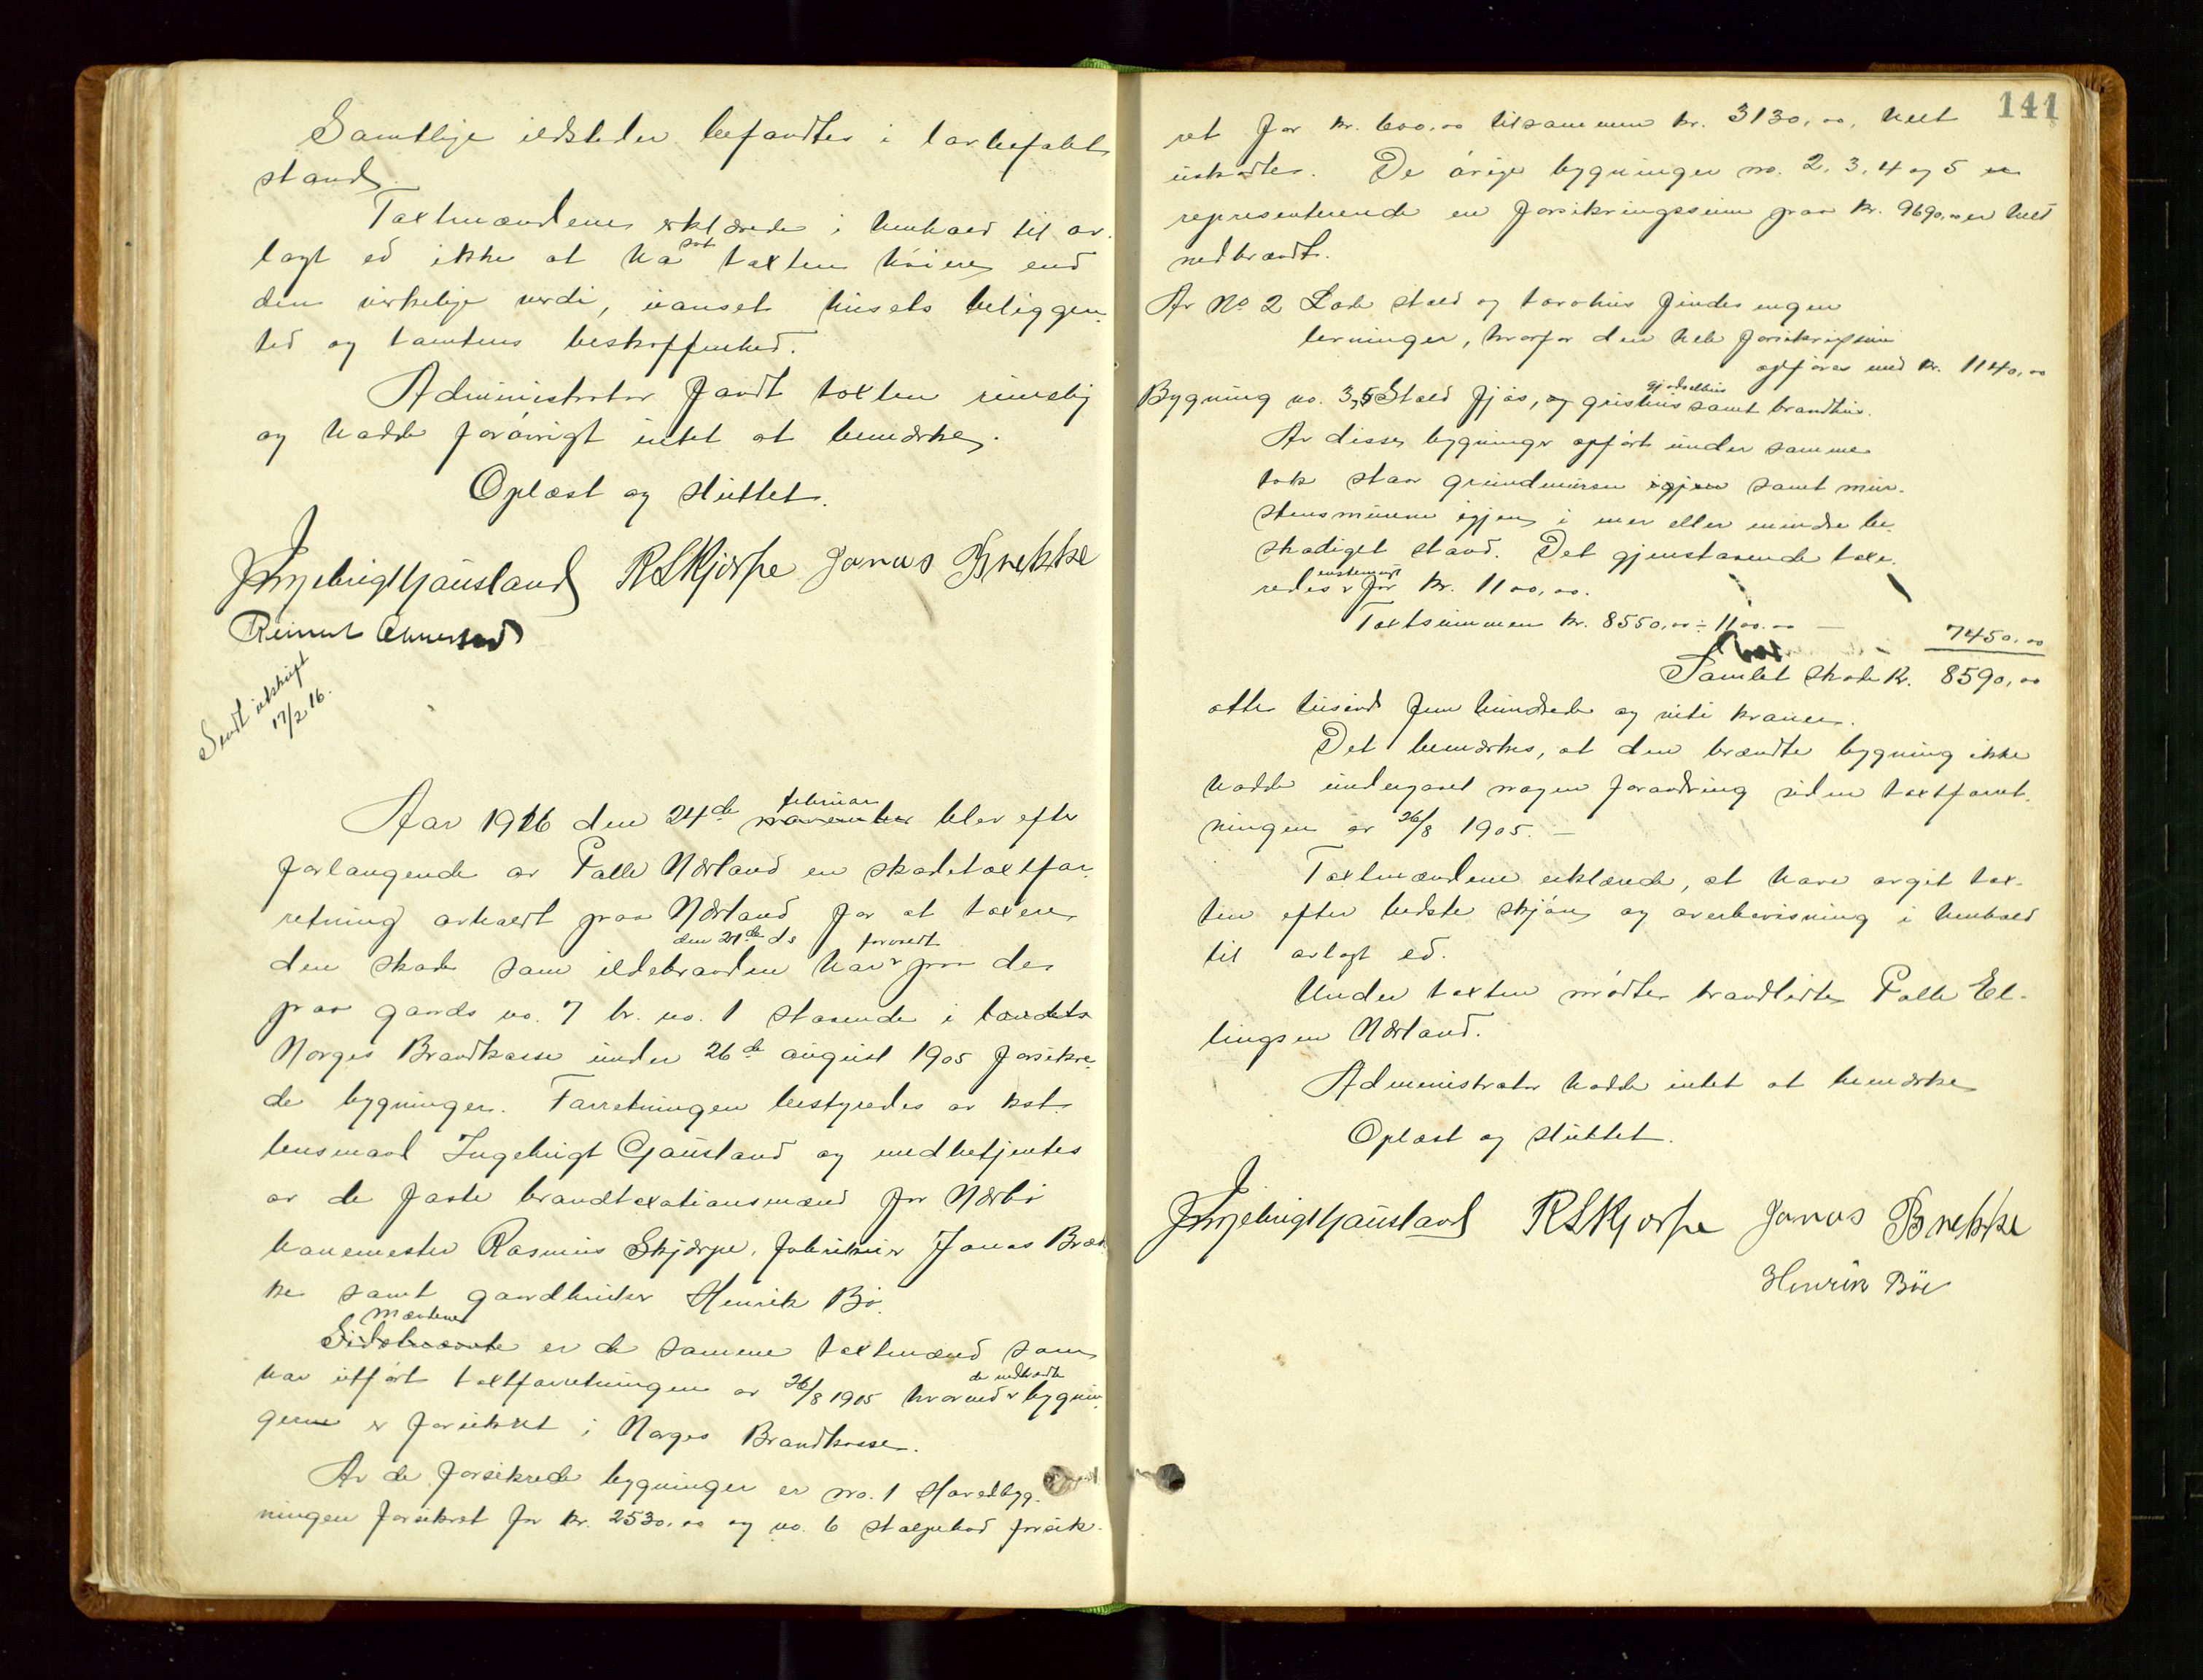 Samtlige ildsteder befandtes i lovbefalt
stand.
Taxtmændene erklærede i henhold til av-
lagt ed ikke at ha sat taxten høiere end
den virkelige verdi, uanset husets beliggen-
hed og tomtens beskaffenhed.
Administrator fandt taxten rimelig
og hadde forøvrigt intet at bemærke.
Oplæst og sluttet.
Ingebrigt Gausland RSkjørpe Jonas Brekke
Reinert
Sendt utskrift
17/2 16.
Aar 1916 den 24de november februar blev efter
forlangende av Palle Nærland en skadetaxtfor-
retning avholdt paa Nærland for at taxere
den skade som ildebranden den 21de ds har forvoldt paa de
paa gaards no. 7 br. no. 1 staaende i landets
Norges Brandkasse under 26de august 1905 forsikre-
de bygninger. Forretningen bestyredes av kst.
lensmand Ingebrigt Gausland og medbetjentes
av de faste brandtaxationsmænd for Nærbø
havnemester Rasmus Skjørpe, fabrikeier Jonas Bræk-
ke samt gaardbruker Henrik Bø.
Sidstnævnte Mændene er de samme taxtmænd som
har utført taxtforretningen av 26/8 1905 hvorved de nedbrændte bygnin-
gerne er forsikret i Norges Brandkasse.
Av de forsikrede bygninger er no. 1 Hovedbyg-
ningen forsikret for kr. 2530,00 og no. 6 stolpebod forsik-
141
ret for kr. 600,00 tilsammen kr. 3130,00, helt
uskadte. De øvrige bygninger no. 2, 3, 4 og 5 er
representerende en forsikringssum paa kr. 9690,00 er helt
nedbrændt.
Av No 2 Lade stald og torvhus findes ingen
levninger, hvorfor den hele forsikringssum
opføres med kr. 1140,00
Bygning no. 3,5 Stald fjøs, og grishus gjødselhus samt brandhus.
Av disse bygninger opført under samme
tak staar grundmuren igjen samt mur-
stensmurene igjen i mer eller mindre be-
skadiget stand. Det gjenstaaende taxe-
redes enstemmigt for kr. 1100,00.
Taxtsummen kr. 8550,00 ÷ 1100.00 — 7450,00
Samlet skade kr. 8590,00
otte tusind fem hundrede og niti kroner.
Det bemærkes, at den brændte bygning ikke
hadde undergaaet nogen forandring siden taxtforret-
ningen av 26/8 1905. —
Taxtmændene erklærede, at have avgit tax-
ten efter bedste skjøn og overbevisning i henhold
til avlagt ed.
Under taxten mødte brandlidte Palle El-
lingsen Nærland.
Administrator hadde intet at bemærke
Oplæst og sluttet.
Ingebrigt Gausland RSkjørpe Jonas Brekke
Henrik Bøe